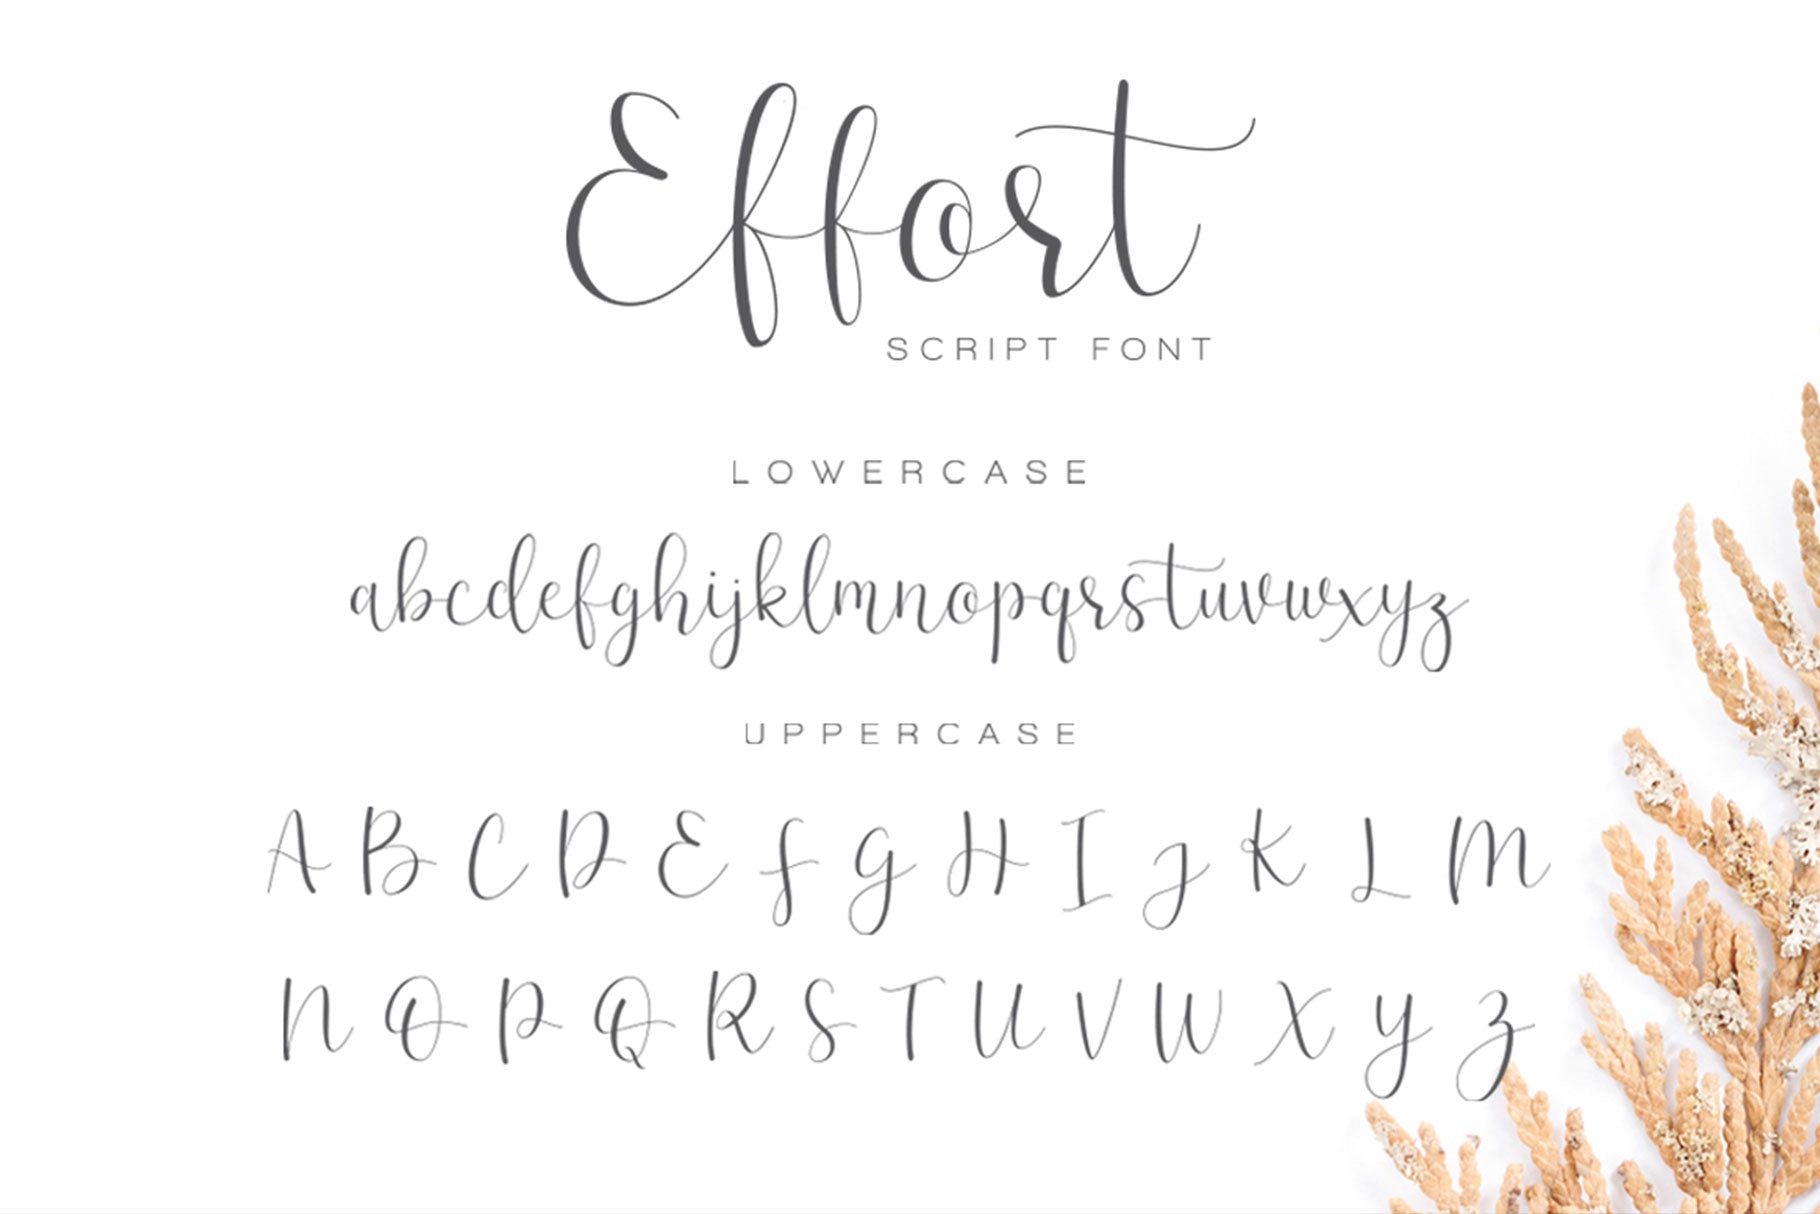 Effort
SCRIPT FONT
LOWERCASE
abcdefghijklmnopqrstuvwxyz
UPPERCASE
A B C D E F G H I J K L M
N O P Q R S T U V W X Y Z